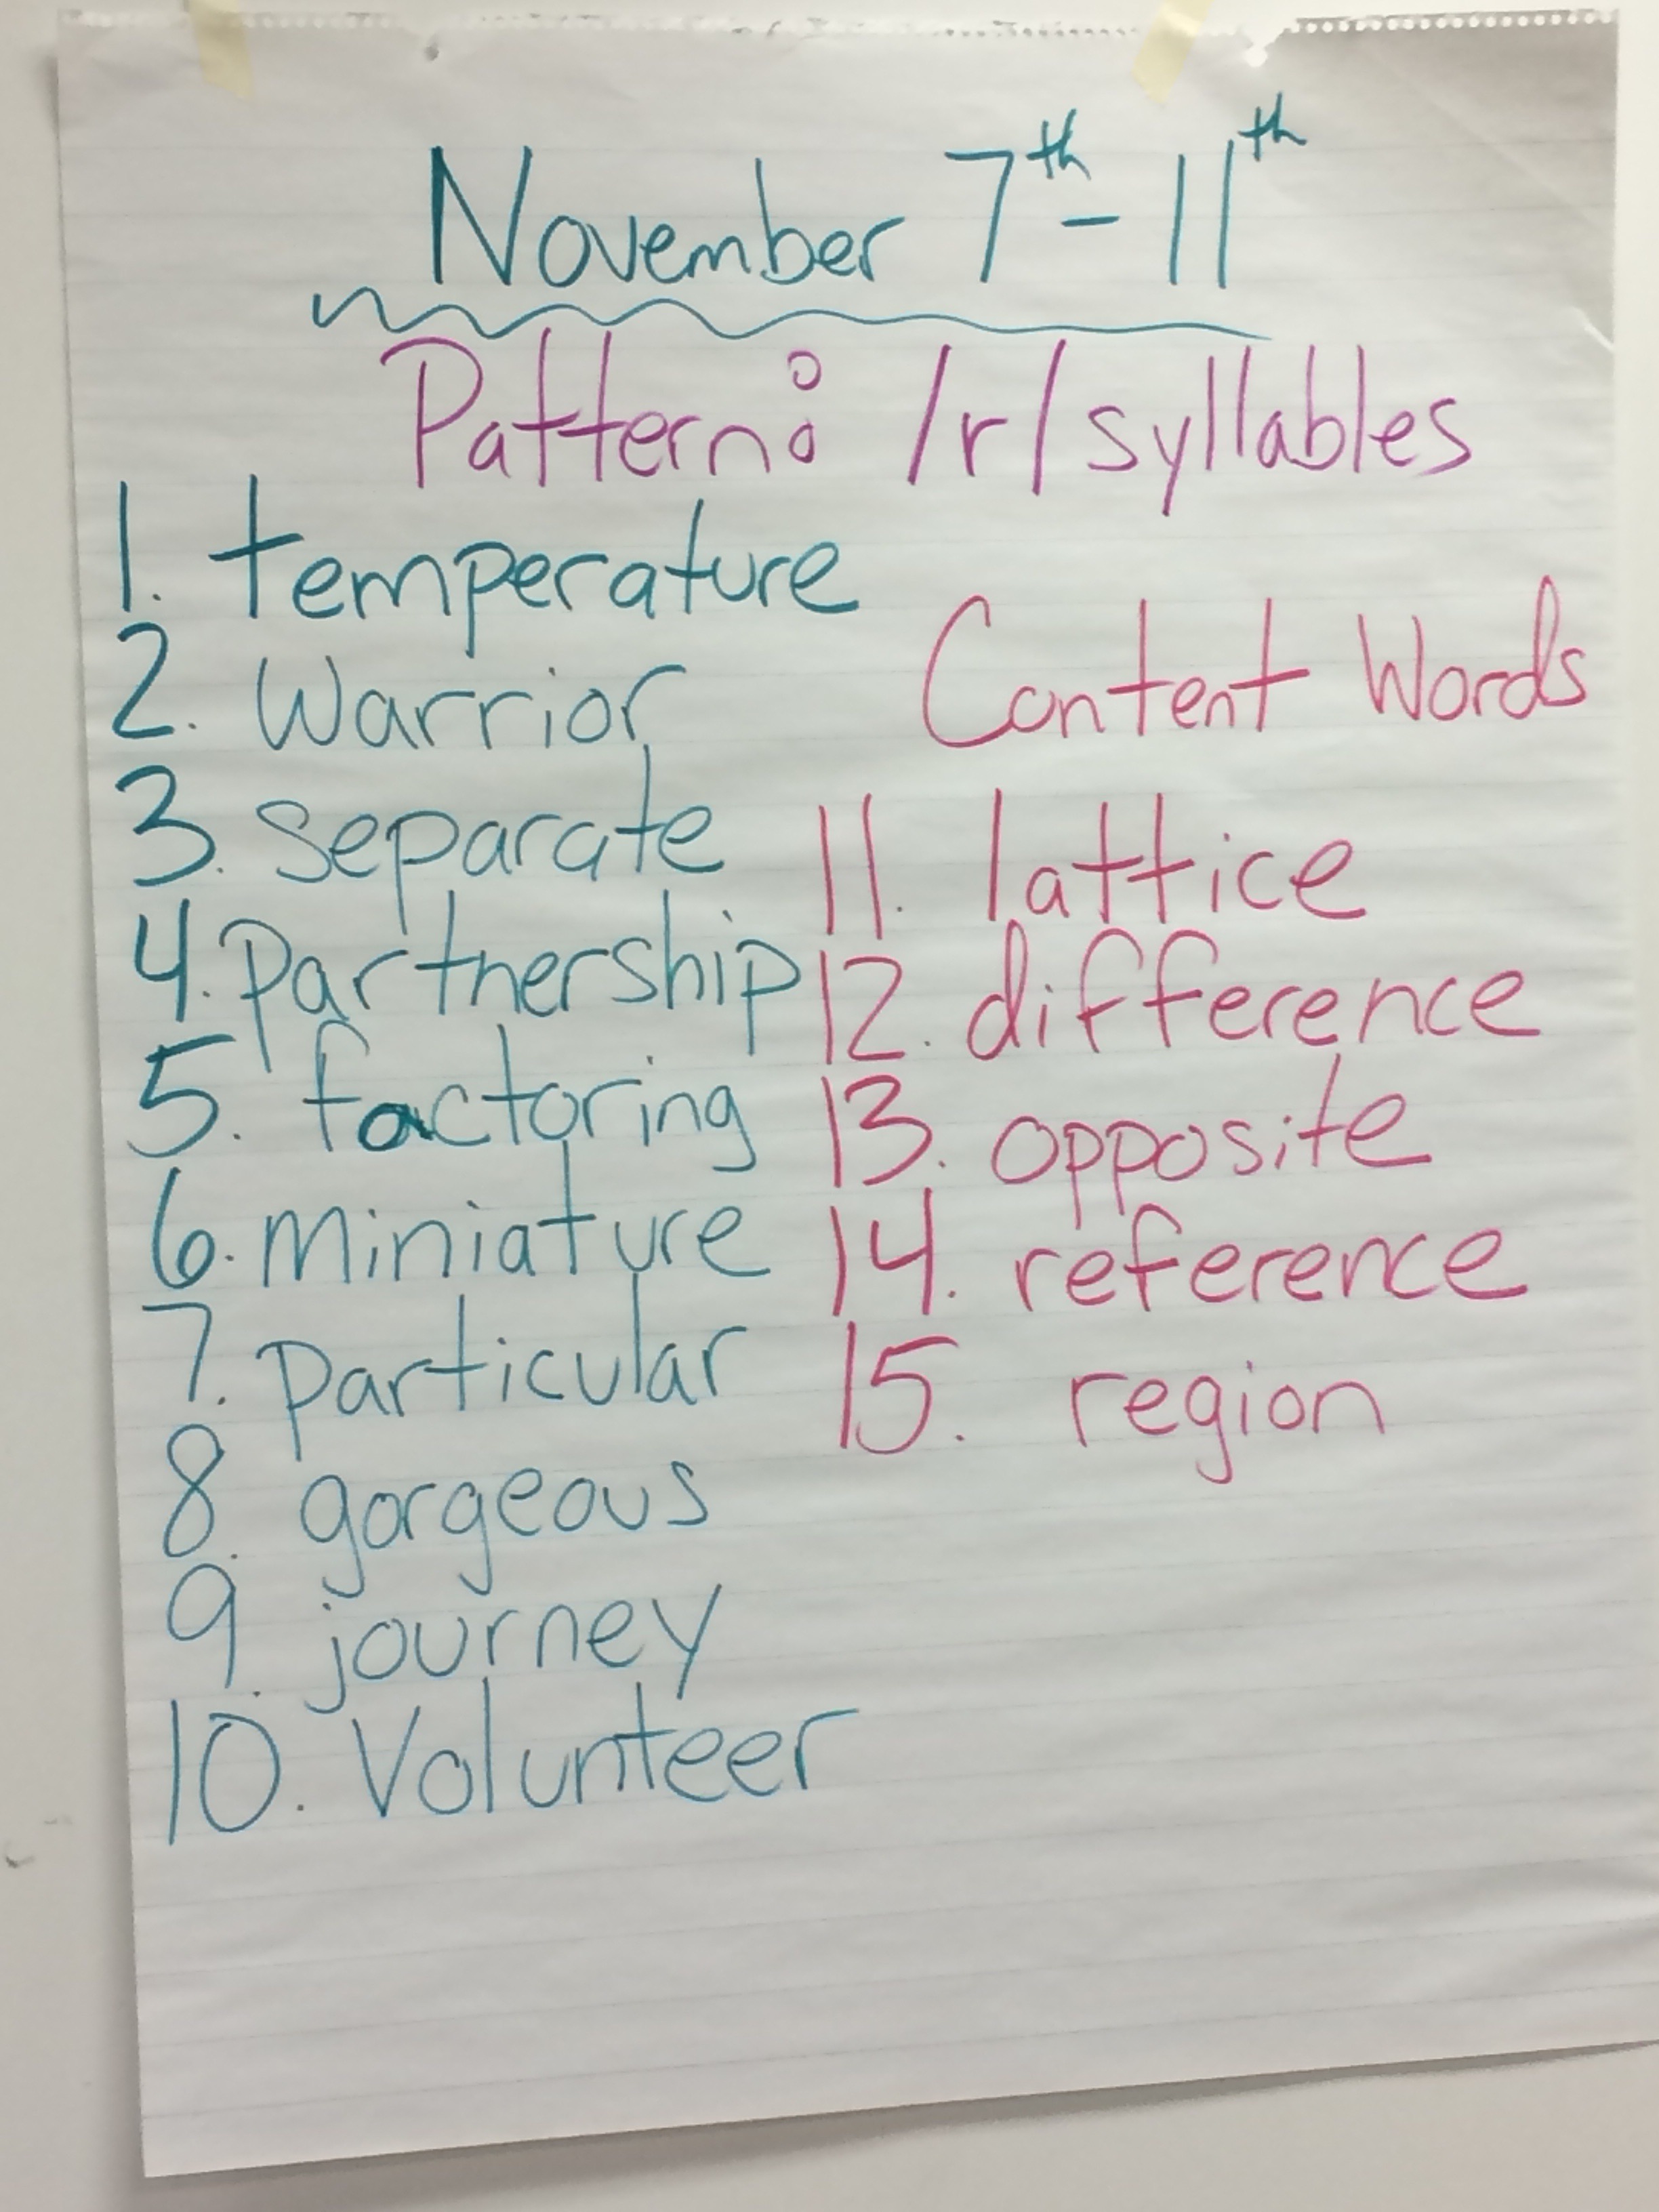 November 7th - 11th
Pattern: /r/ syllables
1. temperature
2. Warrior
3. separate
4. Partnership
5. factoring
6. miniature
7. Particular
8. gorgeous
9. journey
10. Volunteer
Content Words
11. lattice
12. difference
13. opposite
14. reference
15. region